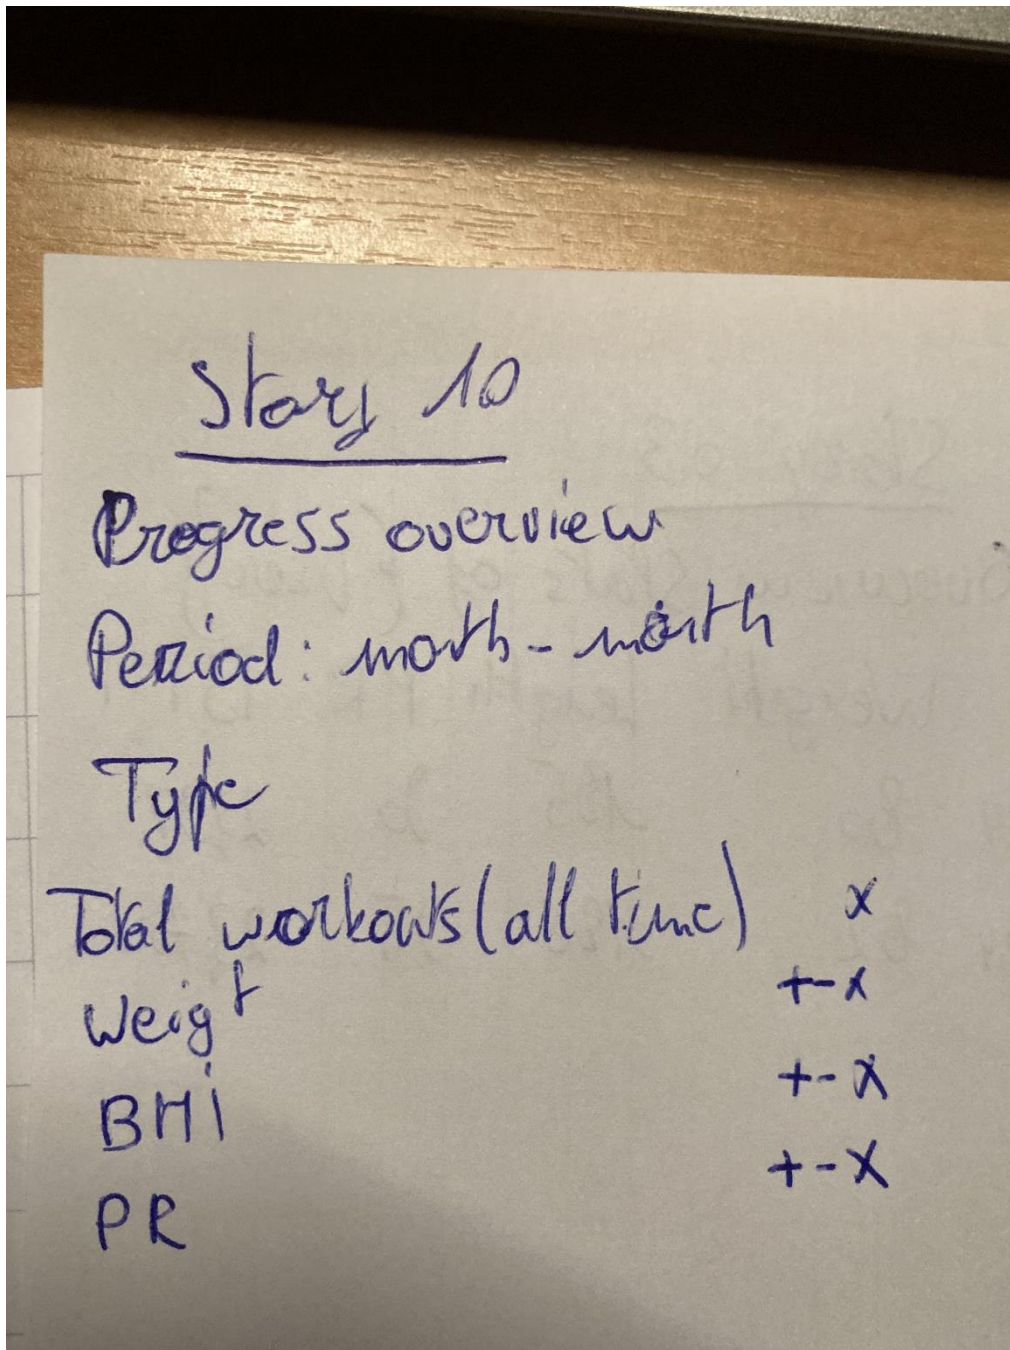 Story 10
Progress overview
Period: month - month
Type
Total workouts (all time) x
Weigt +-x
BMI +-x
PR +-x